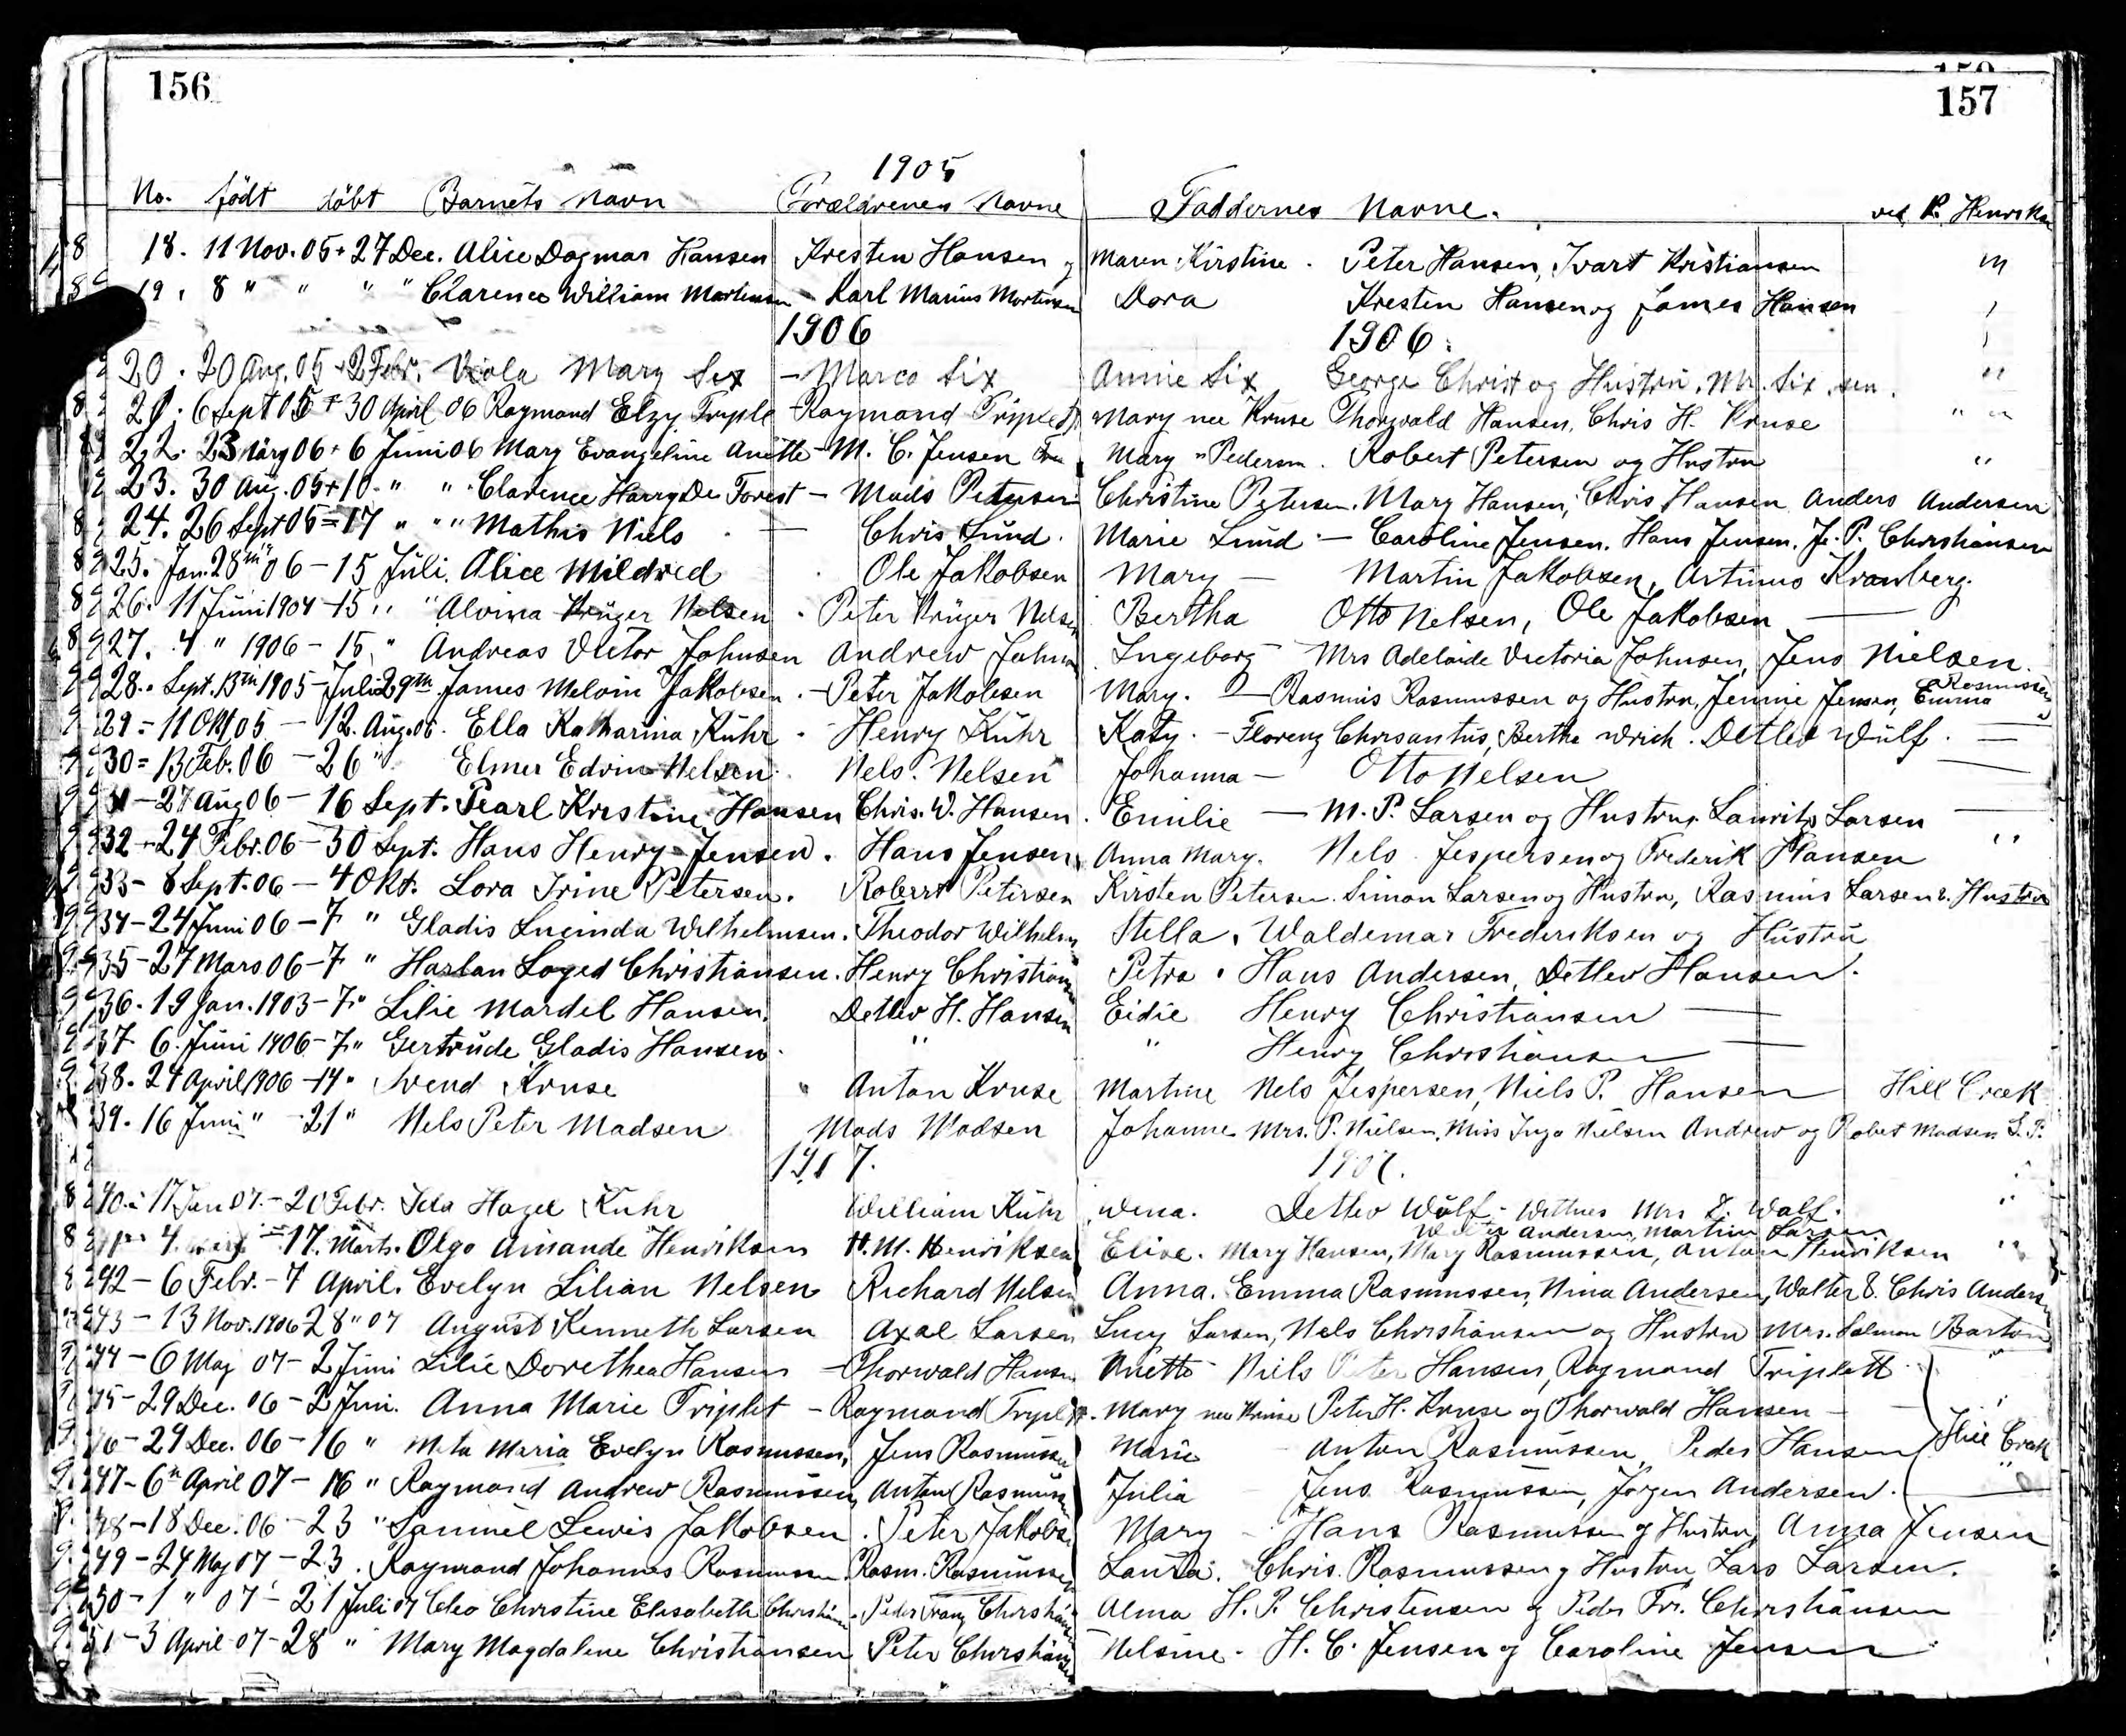 156
157
1905
No. födt döbt Barnets Navn Forældrenes Navne Faddernes Navne. ved P. Henriksen
18. 11 Nov. 05 + 27 Dec. Alice Dagmar Hansen Kresten Hansen og Maren Kirstine. Peter Hansen, Ivart Kristiansen "
19. 8 " " " " Clarence William Mortensen - Karl Marius Mortensen Dora Kresten Hansen og James Hansen
1906 1906.
20. 20 Aug. 05 + 2 Febr. Viola Mary Six - Marco Six Annie Six George Christ og Hustru, Mr. Six, sen. "
21. 6 Sept 05 + 30 April 06 Raymond Elzy Triple - Raymond Triplett Mary nee Kruse Thorwald Hansen, Chris H. Kruse " "
22. 23 Marg 06 + 6 Juni 06 Mary Evangeline Anette - M. C. Jensen Mary " Pedersen. Robert Petersen og Hustru "
23. 30 Aug. 05 + 10 " " Clarence Harry De Forest - Mads Petersen Christine Petersen. Mary Hansen, Chris Hansen Anders Andersen
24. 26 Sept 05 = 17 " " " Mathis Niels - Chris Lund. Marie Lund - Caroline Jensen. Hans Jensen. J. P. Christiansen
25. Jan. 28th 06 - 15 Juli. Alice Mildred Ole Jakobsen Mary - Martin Jakobsen, Artimus Kranberg.
26. 11 Juni 1904 - 15 " " Alvina Krüger Nelsen - Peter Krüger Nelsen Bertha Otto Nelsen, Ole Jakobsen -
27. 4 " 1906 - 15 " Andreas Victor Johnsen Andrew Johnsen Ingeborg Mrs Adelaide Victoria Johnsen, Jens Nielsen.
28. Sept. 13th 1905 - Juli 29th James Melvin Jakobsen. - Peter Jakobsen Mary. - Rasmus Rasmussen og Hustru, Jennie Jensen, Emma Rasmussen
29 = 11 Okt 05 - 12. Aug. 06. Ella Katharina Kühr - Henry Kühr Katy. - Florenz Chrisantus, Bertha Wrich. Detlev Wülf. -
30 = 13 Feb. 06 - 26 " Elmer Edvin Nelsen. Nels. Nelsen Johanna - Otto Nelsen -
31 - 27 Aug 06 - 16 Sept. Pearl Kristine Hansen Chris. W. Hansen. Emilie - M. P. Larsen og Hustru. Lauritz Larsen -
32 - 24 Febr. 06 - 30 Sept. Hans Henry Jensen. Hans Jensen Anna Mary. Nels Jespersen og Frederik Hansen "
33 - 8 Sept. 06 - 4 Okt. Lora Irine Petersen. Robert Petersen Kirsten Petersen. Simon Larsen og Hustru, Rasmus Larsen & Hustru
34 - 24 Juni 06 - 7 " Gladis Lucinda Wilhelmsen. Theodor Wilhelmsen Stella. Waldemar Frederiksen og Hustru
35 - 27 Mars 06 - 7 " Harlan Loyed Christiansen. Henry Christiansen Petra. Hans Andersen, Detlev Hansen.
36. 19 Jan. 1903 - 7 " Lilie Mardel Hansen. Detlev H. Hansen Eidie Henry Christiansen -
37 6. Juni 1906 - 7 " Gertrude Gladis Hansen. " " Henry Christiansen -
38. 24 April 1906 - 14 " Svend Kruse " Anton Kruse Martine Nels Jespersen, Niels P. Hansen Hill Creek
39. 16 Juni " - 21 " Nels Peter Madsen Mads Madsen Johanne Mrs. P. Nielsen, Miss Inga Nielsen Andrew og Robert Madsen S. P.
1907. 1907.
40. - 17 Jan 07. - 20 Febr. Hazel Kuhr William Kuhr Wena. Detlev Wülf - Wittnes Mrs D. Wolf. "
Andersen, Martin Larsen.
41 4. - 17. Marts. Olga Amande Henriksen H. M. Henriksen Elise. Mary Hansen, Mary Rasmussen, Anton Henriksen "
42 - 6 Febr. - 7 April. Evelyn Lilian Nelsen Richard Nelsen Anna. Emma Rasmussen, Nina Andersen, Walter & Chris Andersen
43 - 13 Nov. 1906 28 " 07 August Kenneth Larsen Axal Larsen Lucy Larsen, Nels Christiansen og Hustru Mrs. Salmon Barton
44 - 6 Maj 07 - 2 Juni Lilie Dorethea Hansen - Thorwald Hansen Anette - Niels Peter Hansen, Raymond Triplett "
45 - 29 Dec. 06 - 2 Juni. Anna Marie Triplet - Raymond Triplett. Mary nee Kruse Peter H. Kruse og Thorwald Hansen -
46 - 29 Dec. 06 - 16 " Meta Maria Evelyn Rasmussen, Jens Rasmussen Marie Anton Rasmussen, Peder Hansen Hill Creek
47 - 6th April 07 - 16 " Raymond Andrew Rasmussen, Anton Rasmussen Julia Jens Rasmussen, Jørgen Andersen. "
48 - 18 Dec. 06 - 23 " Samuel Lewis Jakobsen. Peter Jakobsen Mary - Hans Rasmussen og Hustru, Anna Jensen
49 - 24 Maj 07 - 23. Raymond Johannes Rasmussen Rasm. Rasmussen Laura. Chris. Rasmussen og Hustru Lars Larsen.
50 - 1 " 07 - 21 Juli 07 Cleo Christine Elisabeth Christiansen. Peder Franz Christiansen Alma H. P. Christensen og Peder Fr. Christiansen
51 - 3 April 07 - 28 " Mary Magdalene Christiansen Peter Christiansen Nelsine - H. C. Jensen og Caroline Jensen